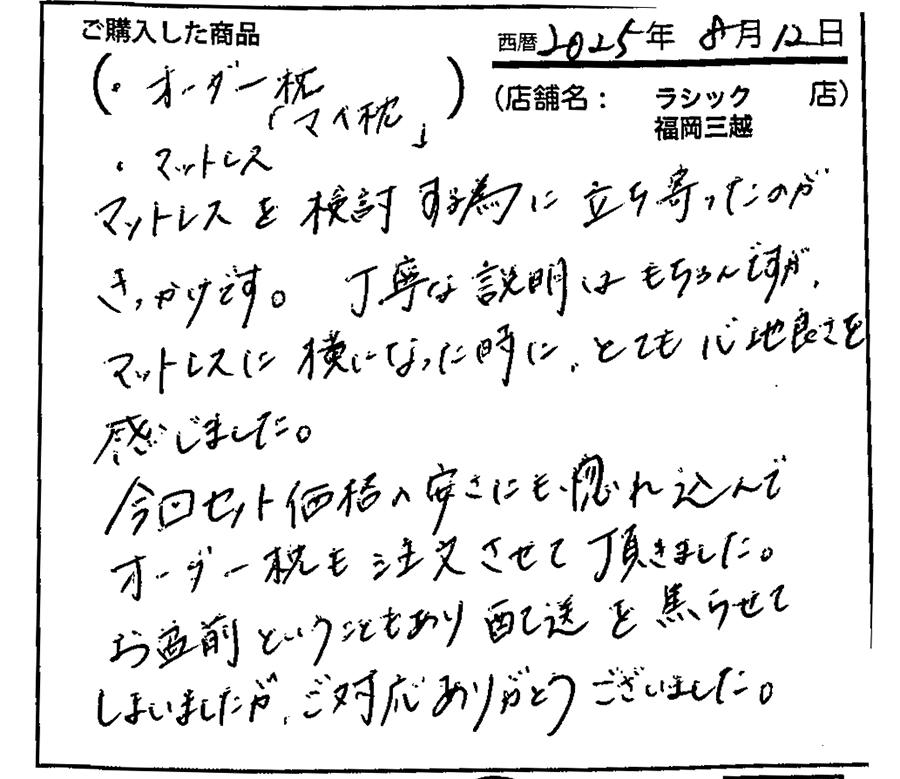 ご購入した商品
西暦2025年 8月12日
(・オーダー枕
「マイ枕」)
(店舗名： ラシック 福岡三越 店)
・マットレス
マットレスを検討する為に立ち寄ったのが
きっかけです。丁寧な説明はもちろんですが、
マットレスに横になった時に、とても心地良さを
感じました。
今回セット価格の安さにも惚れ込んで
オーダー枕も注文させて頂きました。
お盆前ということもあり配送を焦らせて
しまいましたが、ご対応ありがとうございました。